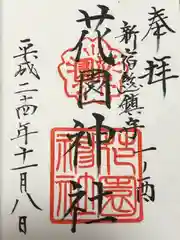 奉拝
新宿総鎮守
一ノ酉
花園神社
平成二十四年十一月八日